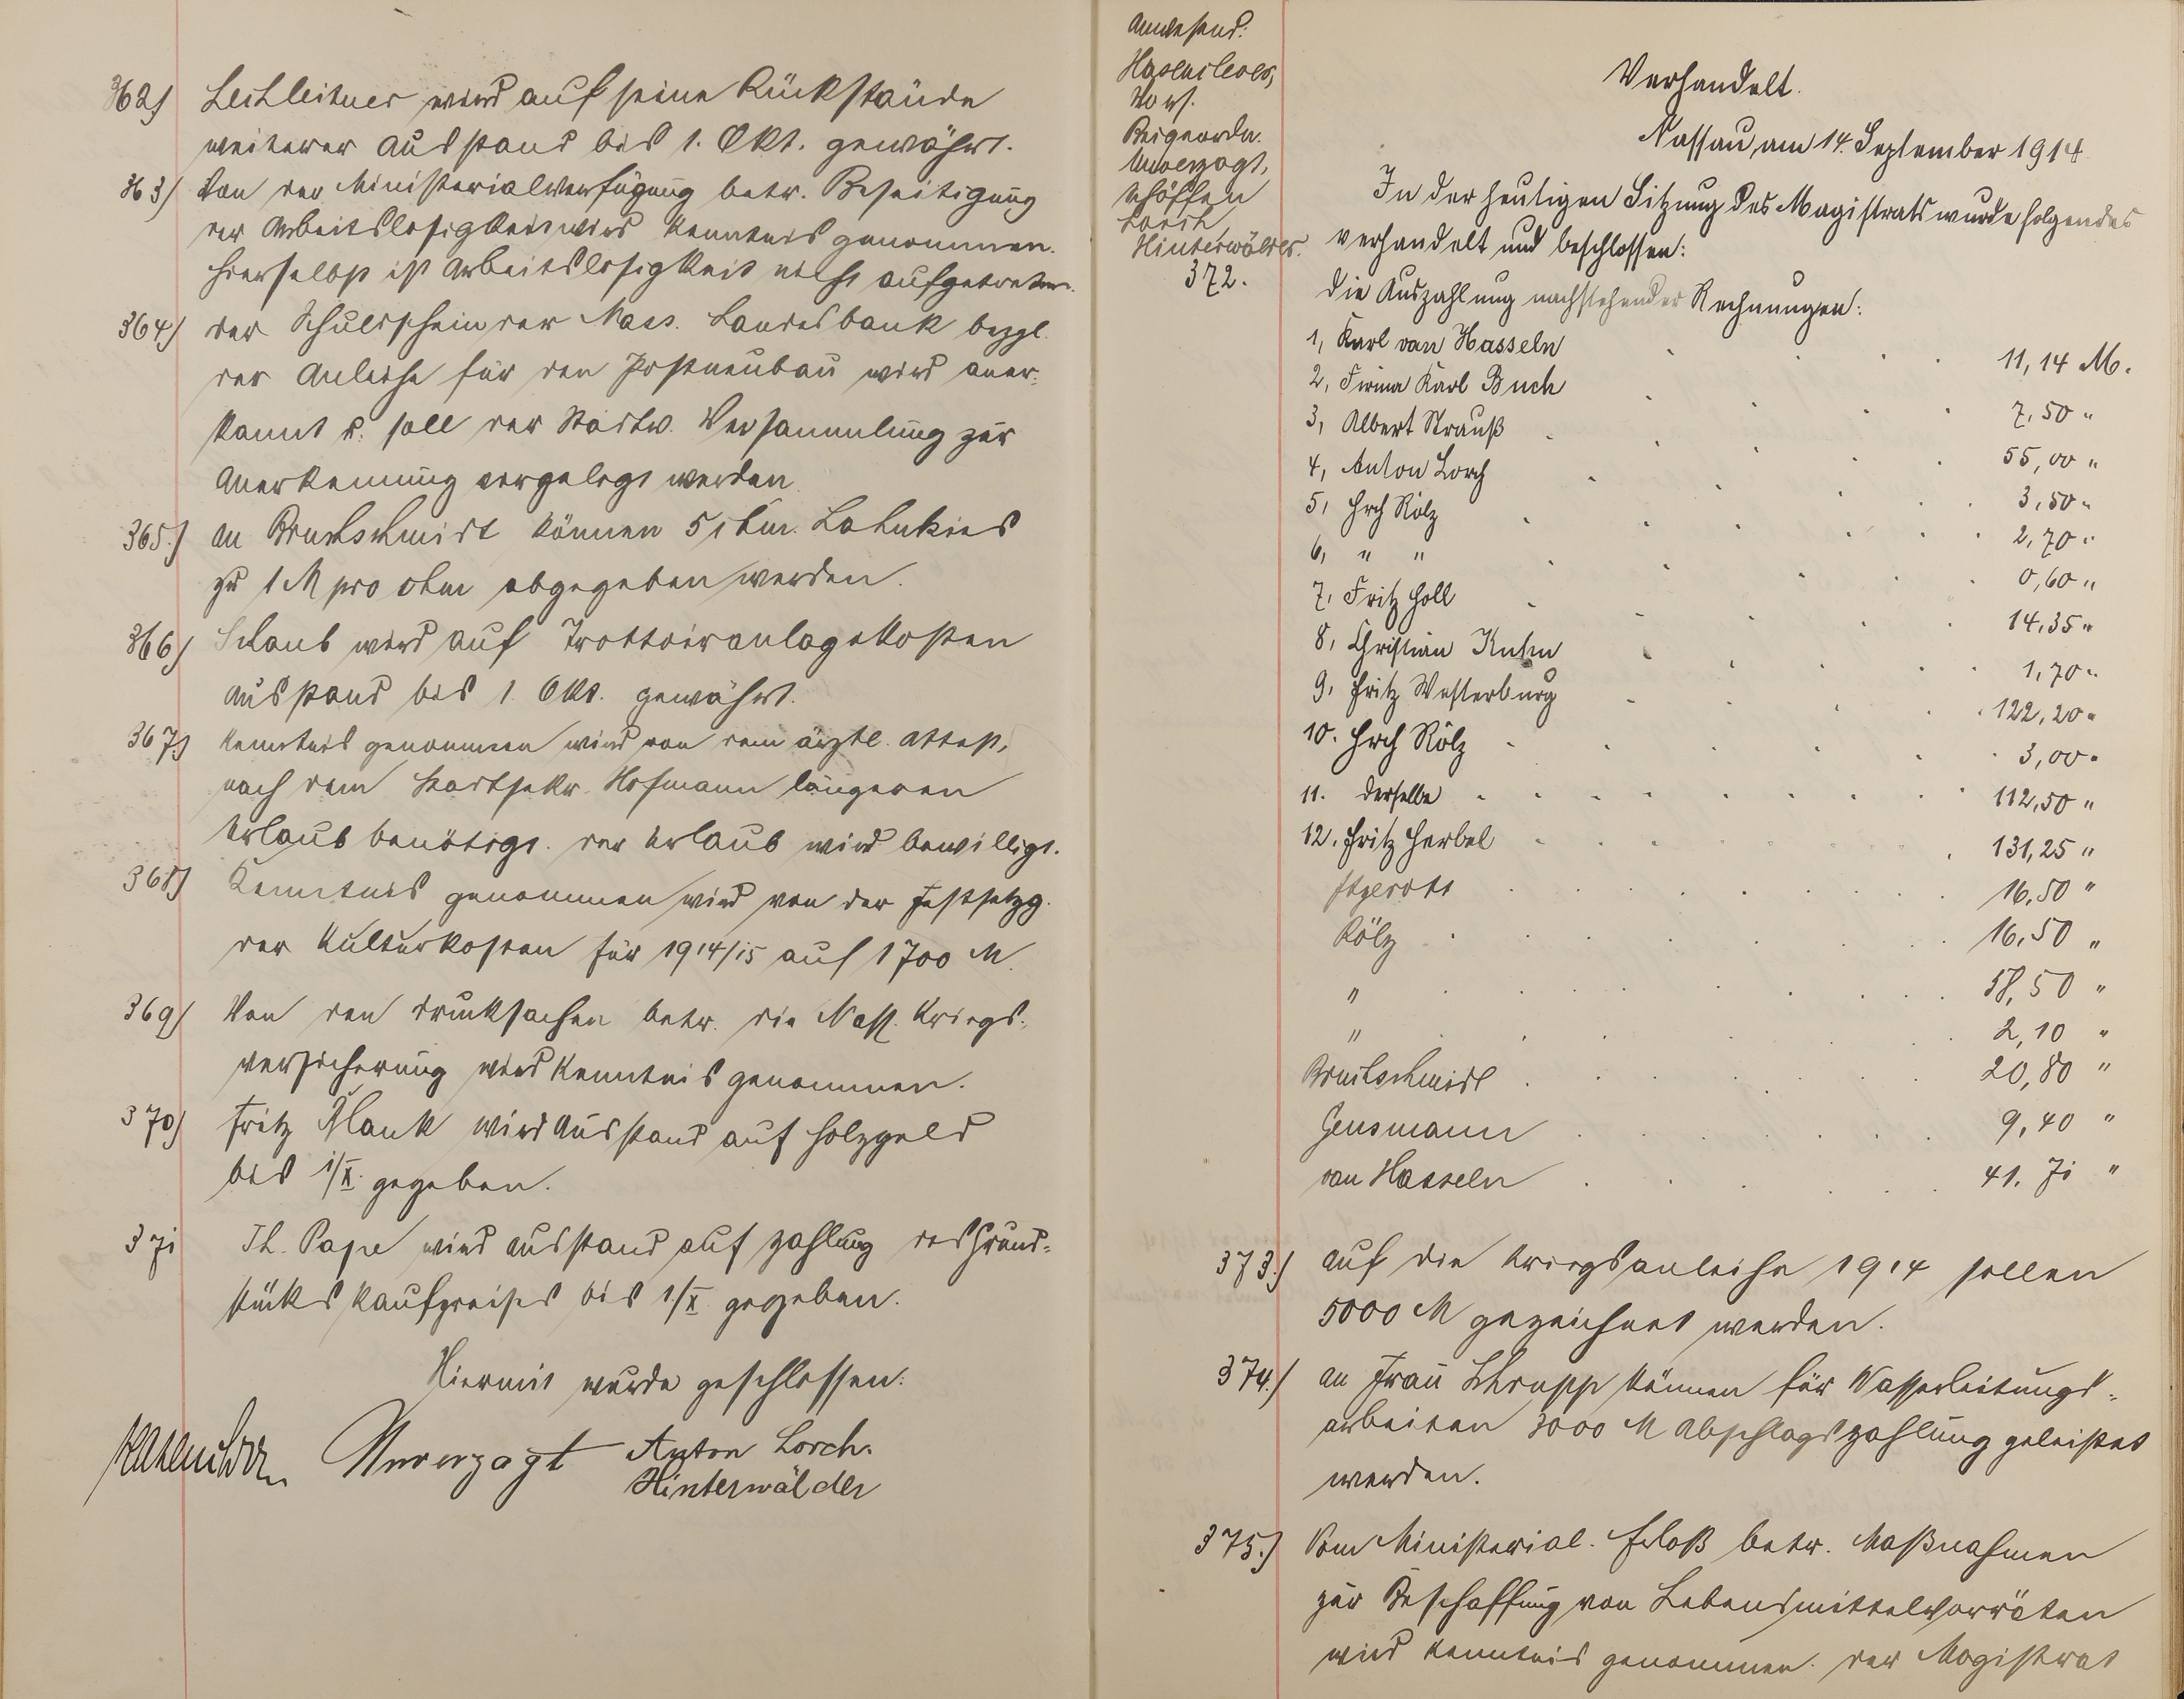 362) Lechleitner wird auf seine Rückstände
weiterer Ausstand bis 1. Okt. gewährt.
363) Von der Ministerialverfügung betr. Beseitigung
der Arbeitslosigkeit wird Kenntnis genommen.
Hierselbst ist Arbeitslosigkeit nicht aufgetreten.
364) Der Schuldschein der Nass. Landesbank bezgl.
der Anleihe für den Postneubau wird aner-
kannt u. soll der Stadtv. Versammlung zur
Anerkennung vorgelegt werden.
365.) An Bruchschmidt können 5 cbm. Lahnkies
zu 1 M pro cbm abgegeben werden.
366) Schaub wird auf Trottoiranlagekosten
Ausstand bis 1. Okt. gewährt.
367.) Kenntnis genommen wird von dem ärztl. Attest,
nach dem Stadtsekr. Hofmann längeren
Urlaub benötigt. Der Urlaub wird bewilligt.
368) Kenntnis genommen wird von der Festsetzg.
der Kulturkosten für 1914/15 auf 1700 M.
369) Von den Drucksachen betr. die Nass. Kriegs-
versicherung wird Kenntnis genommen.
370) Fritz Plank wird Ausstand auf Holzgeld
bis 1/X. gegeben.
371 Th. Pape wird Ausstand auf Zahlung des Grund-
stückskaufpreises bis 1/X. gegeben.
Hiermit wurde geschlossen:
Hasenclever Unverzagt Anton Lorch.
Hinterwälder
Anwesend:
Hasenclever,
Vors.
Beigeordn.
Unverzagt,
Schöffen
Lorch
Hinterwälder.
Verhandelt.
Nassau, am 14. September 1914
In der heutigen Sitzung des Magistrats wurde folgendes
verhandelt und beschlossen:
372. Die Auszahlung nachstehender Rechnungen:
1, Karl van Hasseln . . . . 11,14 M.
2, Firma Karl Buch . . . . 7,50 "
3, Albert Strauß . . . . 55,00 "
4, Anton Lorch . . . . 3,50 "
5, Hrch Rölz . . . . 2,70 "
6, " " . . . . 0,60 "
7, Fritz Holl . . . . 14,35 "
8, Christian Kuhn . . . . 1,70 "
9, Fritz Westerburg . . . . 122,20 "
10. Hrch Rölz . . . . 3,00 "
11. Derselbe . . . . 112,50 "
12. Fritz Herbel . . . . 131,25 "
. . . . 16,50 "
Rölz . . . . 16,50 "
" . . . . 58,50 "
" . . . . 2,10 "
Bruchschmidt . . . . 20,80 "
Gensmann . . . . 9,40 "
van Hasseln . . . . 41.71 "
373.) Auf die Kriegsanleihe 1914 sollen
5000 M gezeichnet werden.
374.) An Frau Schrupp können für Wasserleitungs-
arbeiten 3000 M Abschlagszahlung geleistet
werden.
375.) Vom Ministerial-Erlaß betr. Maßnahmen
zur Beschaffung von Lebensmittelvorräten
wird Kenntnis genommen. Der Magistrat